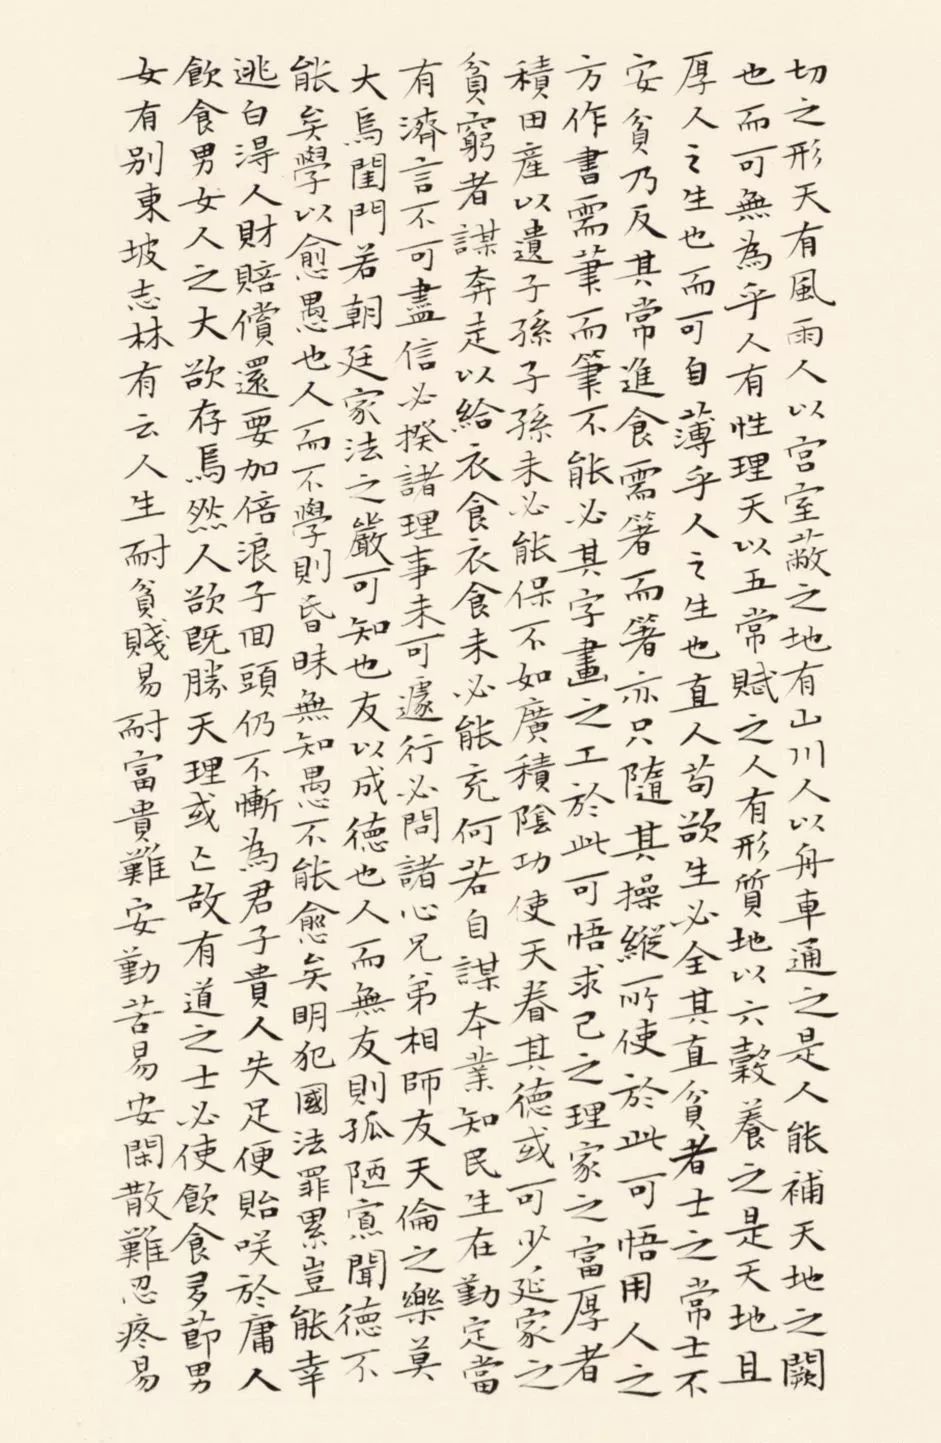 切之形天有風雨人以宮室蔽之地有山川人以舟車通之是人能補天地之闕
也而可無為乎人有性理天以五常賦之人有形質地以六穀養之是天地且
厚人之生也而可自薄乎人之生也直人苟欲生必全其直貧者士之常士不
安貧乃反其常進食需箸而箸亦只隨其操縱所使於此可悟用人之
方作書需筆而筆不能必其字畫之工於此可悟求己之理家之富厚者
積田産以遺子孫子孫未必能保不如廣積陰功使天眷其德或可少延家之
貧窮者謀奔走以給衣食衣食未必能充何若自謀本業知民生在勤定當
有濟言不可盡信必揆諸理事未可遽行必問諸心兄弟相師友天倫之樂莫
大焉閨門若朝廷家法之嚴可知也友以成德也人而無友則孤陋寡聞德不
能矣學以愈愚也人而不學則昏昧無知愚不能愈矣明犯國法罪累豈能幸
逃白得人財賠償還要加倍浪子回頭仍不慚為君子貴人失足便貽咲於庸人
飲食男女人之大欲存焉然人欲既勝天理或亡故有道之士必使飲食有節男
女有別東坡志林有云人生耐貧賤易耐富貴難安勤苦易安閑散難忍疼易